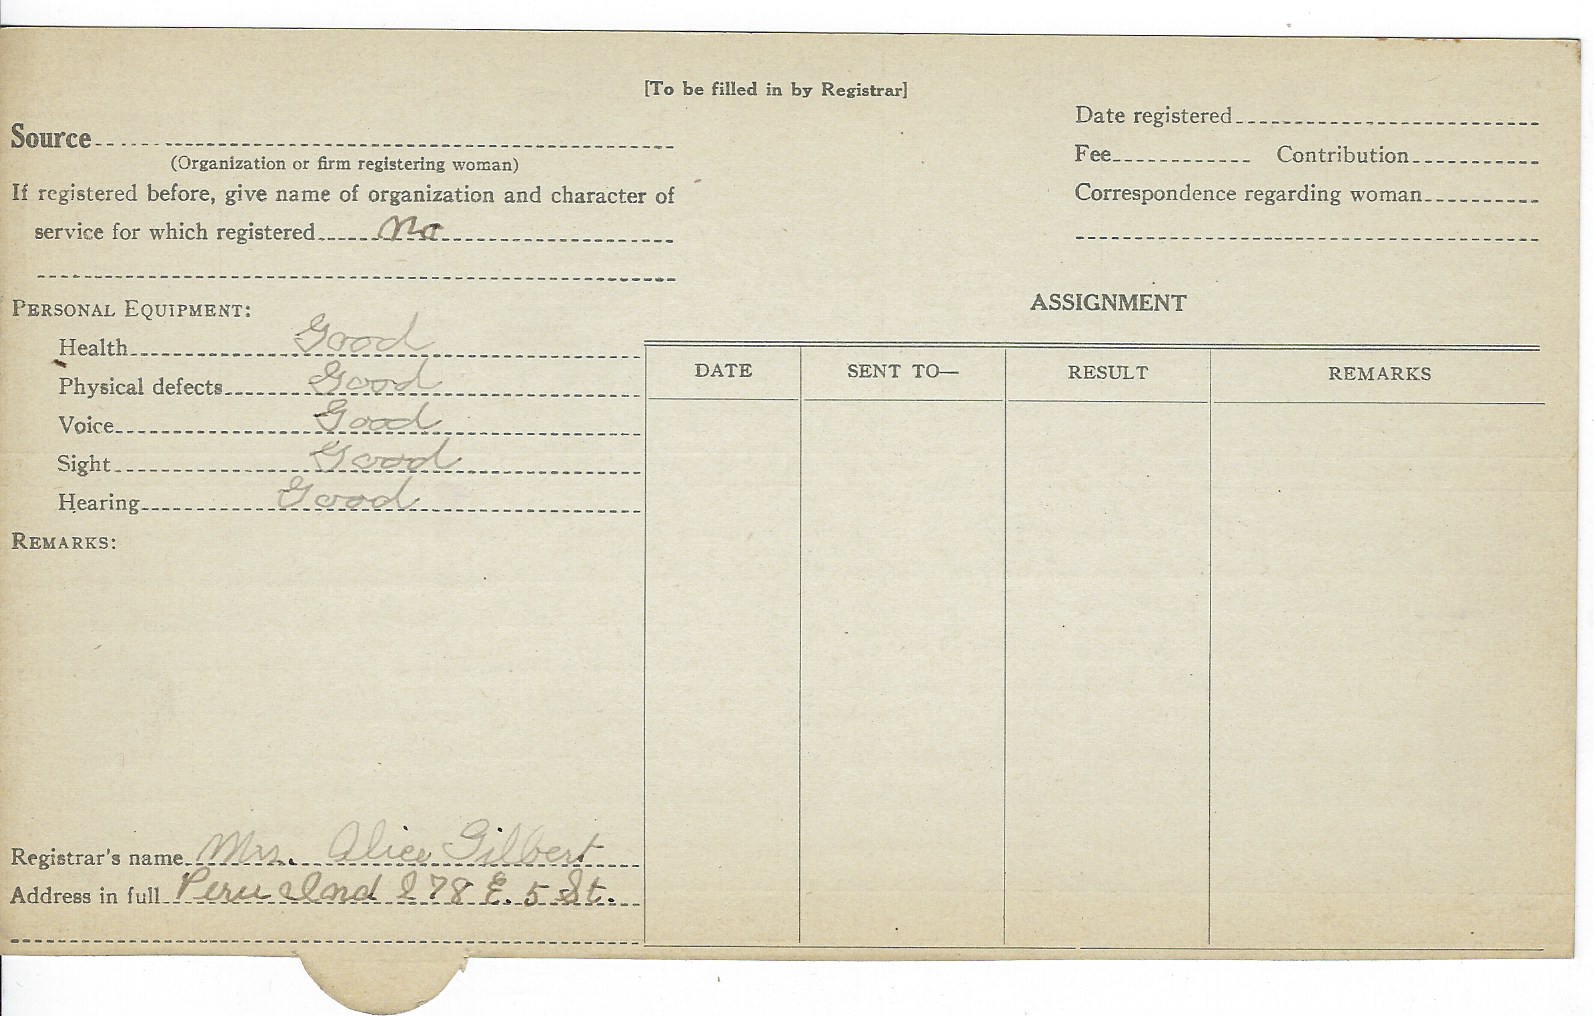 [To be filled in by Registrar]
Source
(Organization or firm registering woman)
If registered before, give name of organization and character of
service for which registered No
Date registered
Fee Contribution
Correspondence regarding woman
PERSONAL EQUIPMENT:
Health Good
Physical defects Good
Voice Good
Sight Good
Hearing Good
REMARKS:
Registrar's name Mrs. Alice Gilbert
Address in full Peru Ind 278 E. 5 St.
ASSIGNMENT
DATE SENT TO— RESULT REMARKS